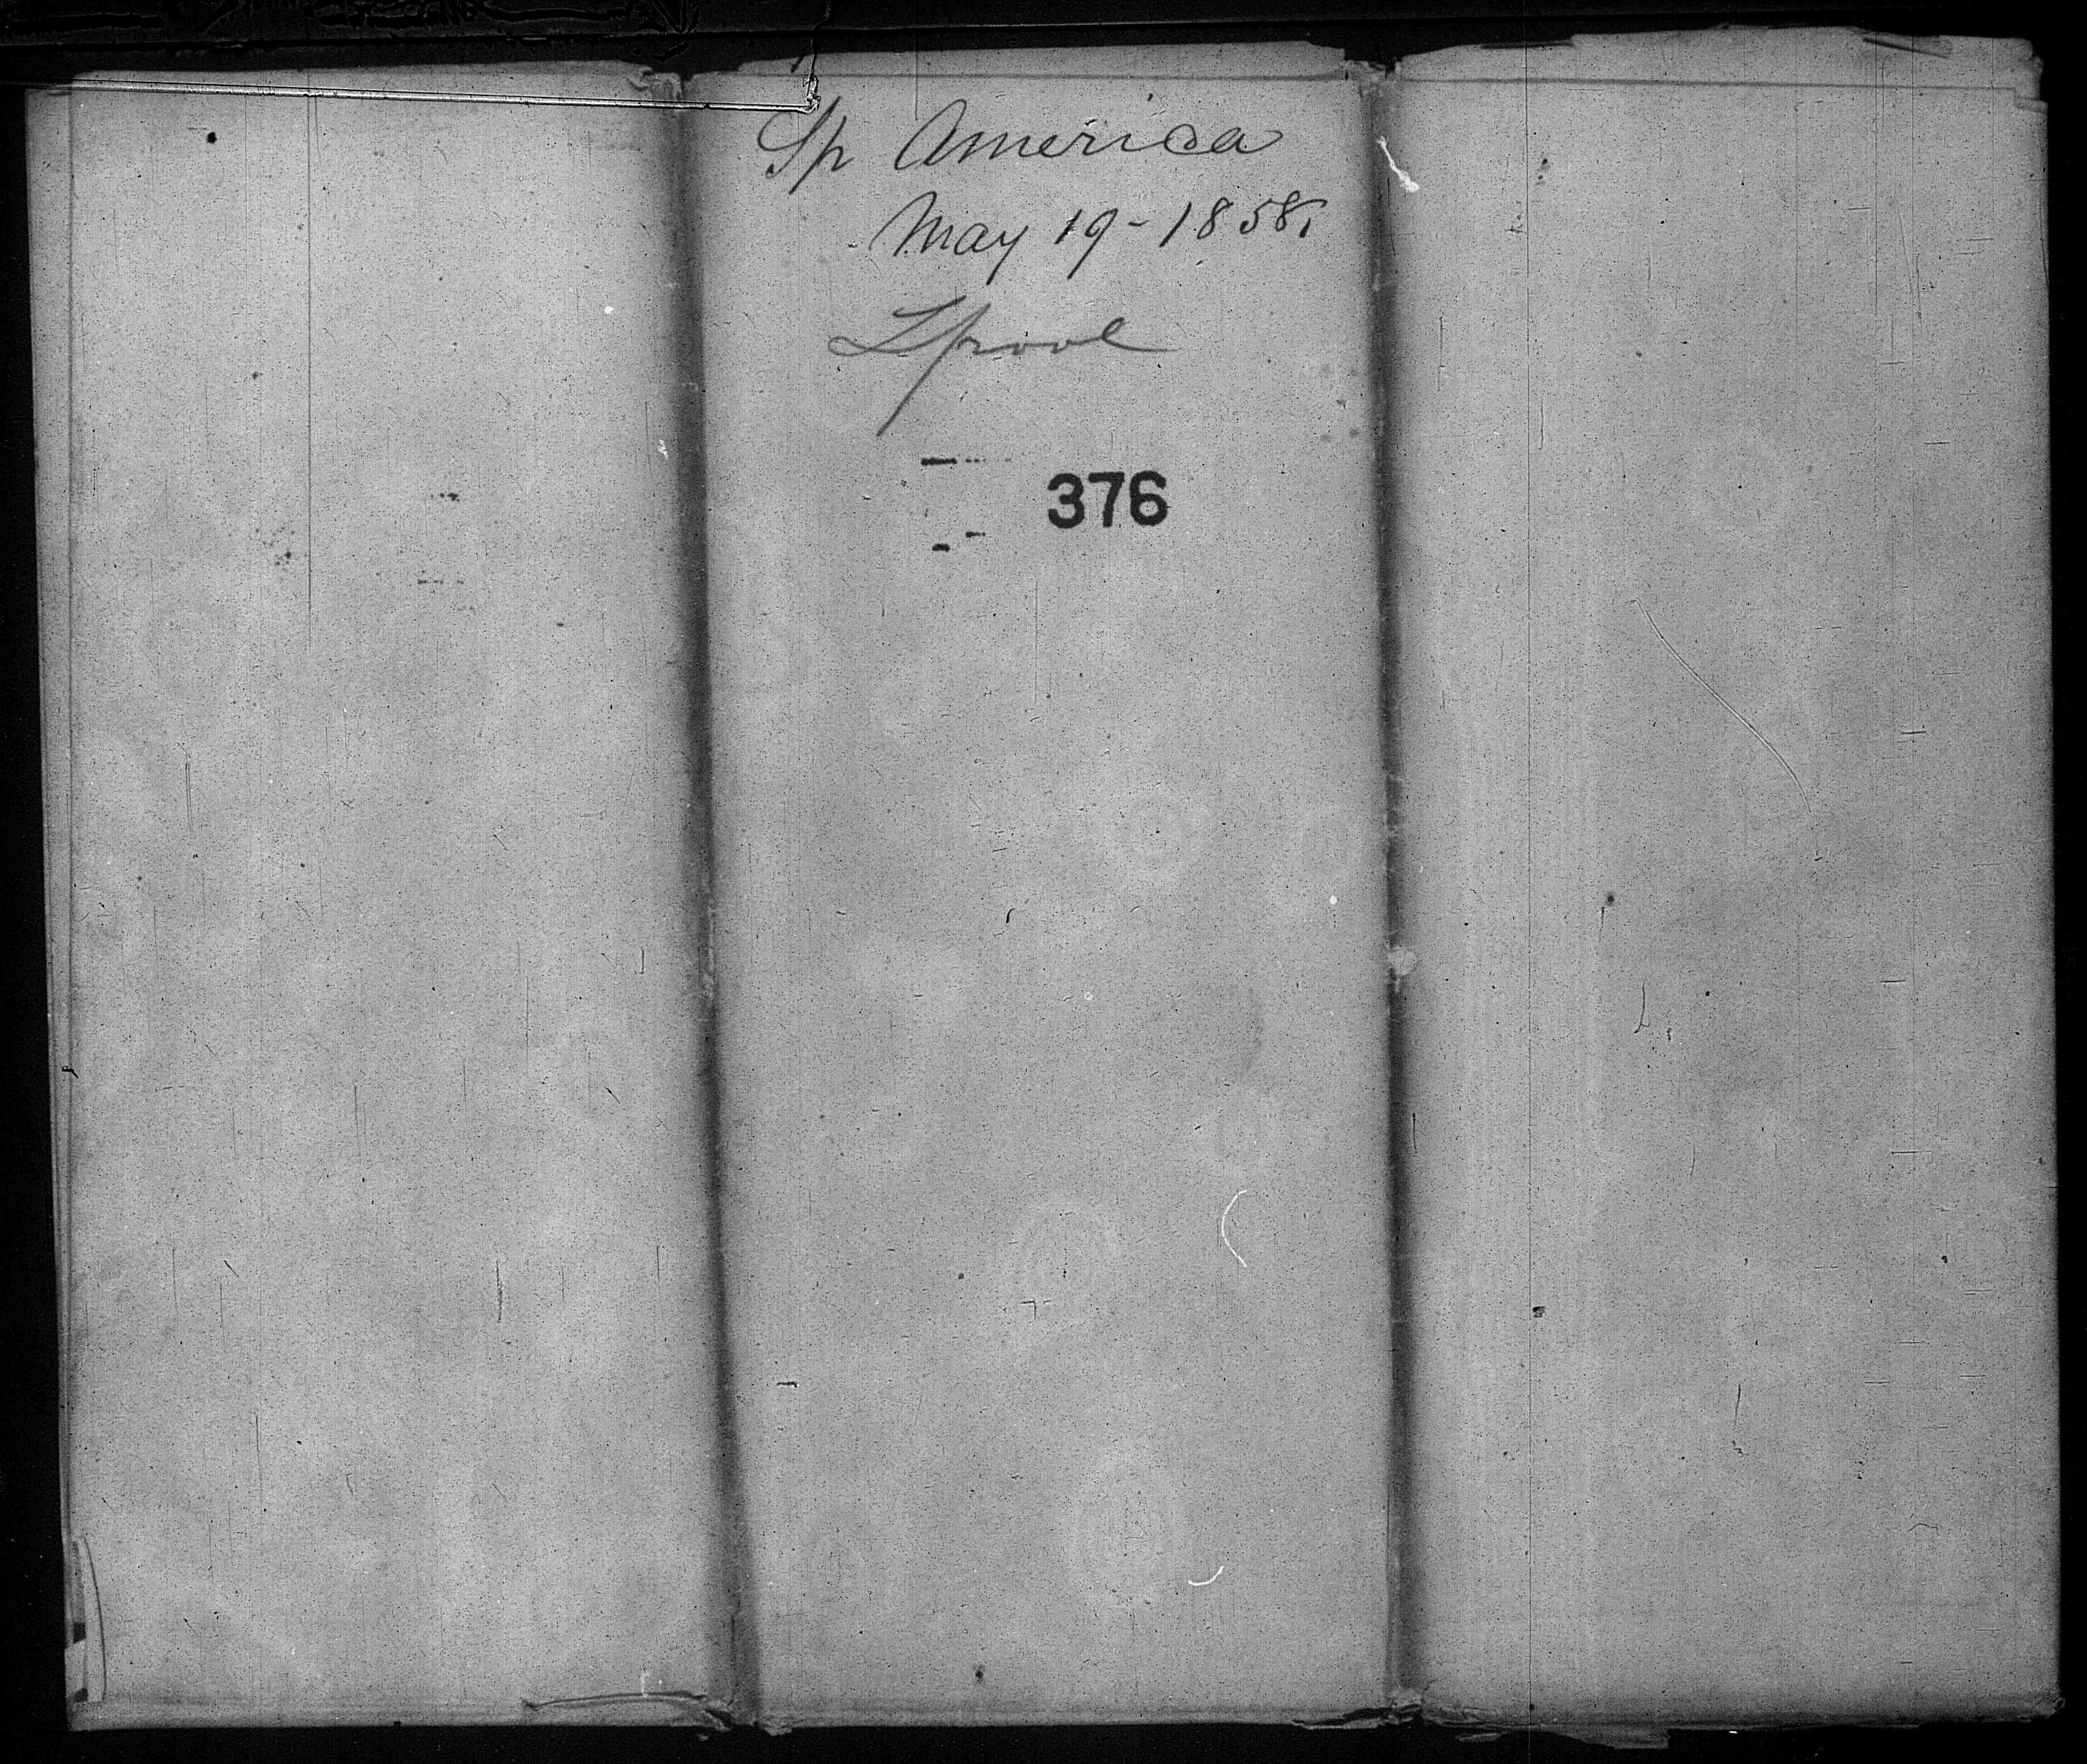 Sp America
May 19-1858.
Lpool
376